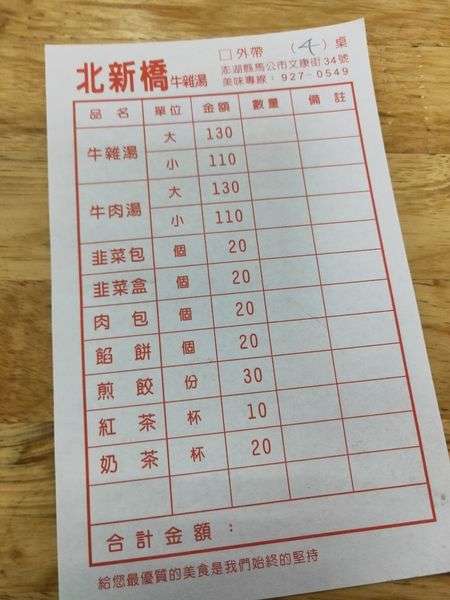 □外帶 (4)桌
北新橋牛雜湯 澎湖縣馬公市文康街34號
美味專線:927-0549
品名 單位 金額 數量 備註
牛雜湯 大 130
小 110
牛肉湯 大 130
小 110
韭菜包 個 20
韭菜盒 個 20
肉包 個 20
餡餅 個 20
煎餃 份 30
紅茶 杯 10
奶茶 杯 20
合計金額:
給您最優質的美食是我們始終的堅持